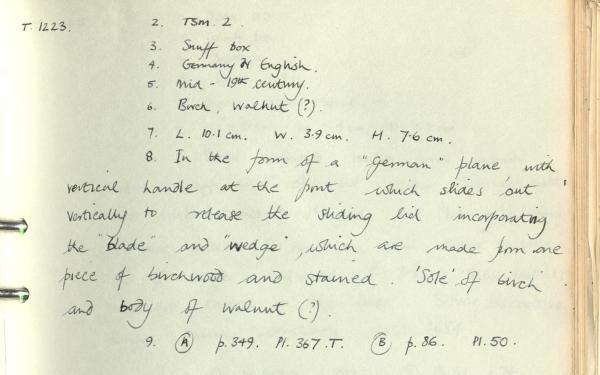 T. 1223. 2. TSM. 2.
3. Snuff box
4. Germany or English.
5. Mid - 19th century.
6. Birch, walnut (?).
7. L. 10.1 cm. W. 3.9 cm. H. 7.6 cm.
8. In the form of a "German" plane with
vertical handle at the front which slides out
vertically to release the sliding lid incorporating
the "blade" and "wedge", which are made from one
piece of birchwood and stained. 'Sole' of birch
and body of walnut (?).
9. A p.349. Pl. 367.T. B p.86. Pl.50.